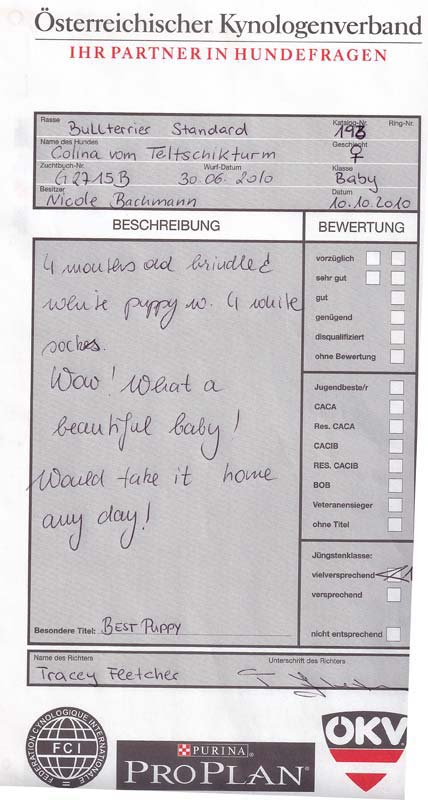 Österreichischer Kynologenverband
IHR PARTNER IN HUNDEFRAGEN
Rasse Bullterrier Standard Katalog-Nr. 193 Ring-Nr.
Name des Hundes Colina vom Teltschikturm Geschlecht ♀
Zuchtbuch-Nr. G2715B Wurf-Datum 30.06.2010 Klasse Baby
Besitzer Nicole Bachmann Datum 10.10.2010
BESCHREIBUNG
4 months old brindle &
white puppy w. 4 white
sockes.
Wow! What a
beautiful baby!
Would take it home
any day!
Besondere Titel: BEST PUPPY
BEWERTUNG
vorzüglich
sehr gut
gut
genügend
disqualifiziert
ohne Bewertung
Jugendbeste/r
CACA
Res. CACA
CACIB
RES. CACIB
BOB
Veteranensieger
ohne Titel
Jüngstenklasse:
vielversprechend 1
versprechend
nicht entsprechend
Name des Richters Unterschrift des Richters
Tracey Fletcher
FEDERATION CYNOLOGIQUE INTERNATIONALE
FCI
PURINA
PRO PLAN
ÖKV